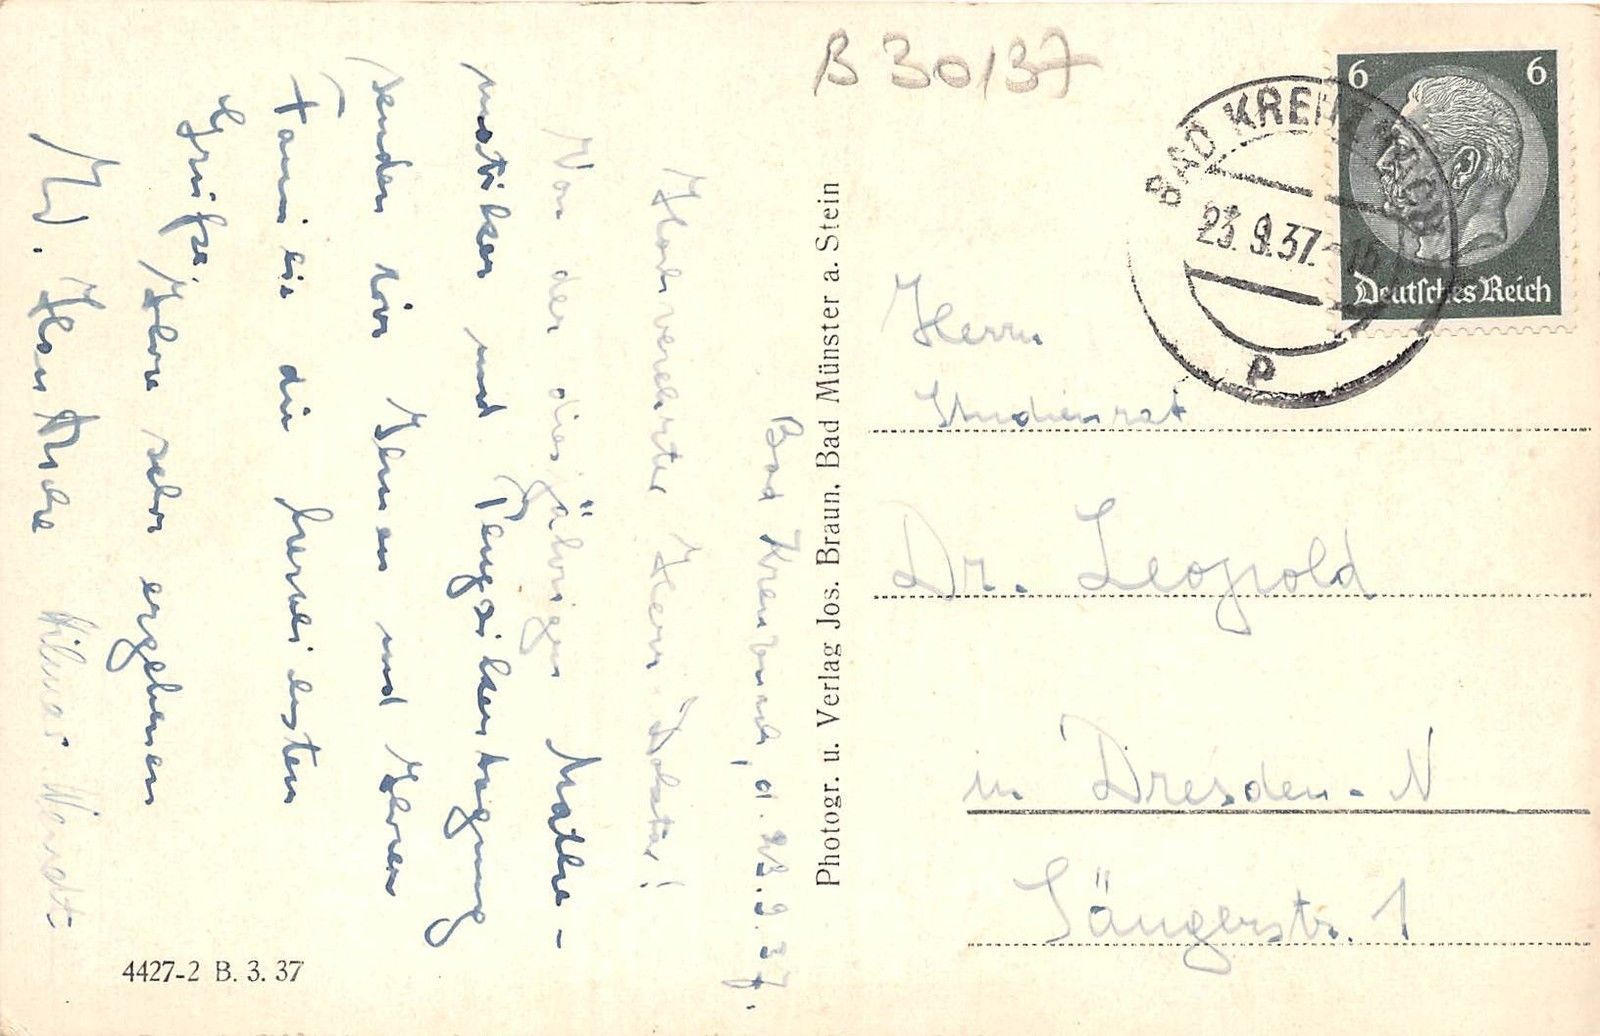 B 30/37
6 6
Deutsches Reich
BAD KREUZNACH
23.9.37.-16
p
Bad Kreuznach, d. 23.9.37.
Hochverehrter Herr Doktor!
Von der diesjährigen Mathe-
matiker und Physikertagung
senden wir Ihnen und Ihrer
Familie die herzlichsten
Grüße,
Ihre sehr ergebenen
Hans
Photogr. u. Verlag Jos. Braun, Bad Münster a. Stein
Herrn
Studienrat
Dr. Leopold
in Dresden-N
Sängerstr. 1
4427-2 B. 3. 37